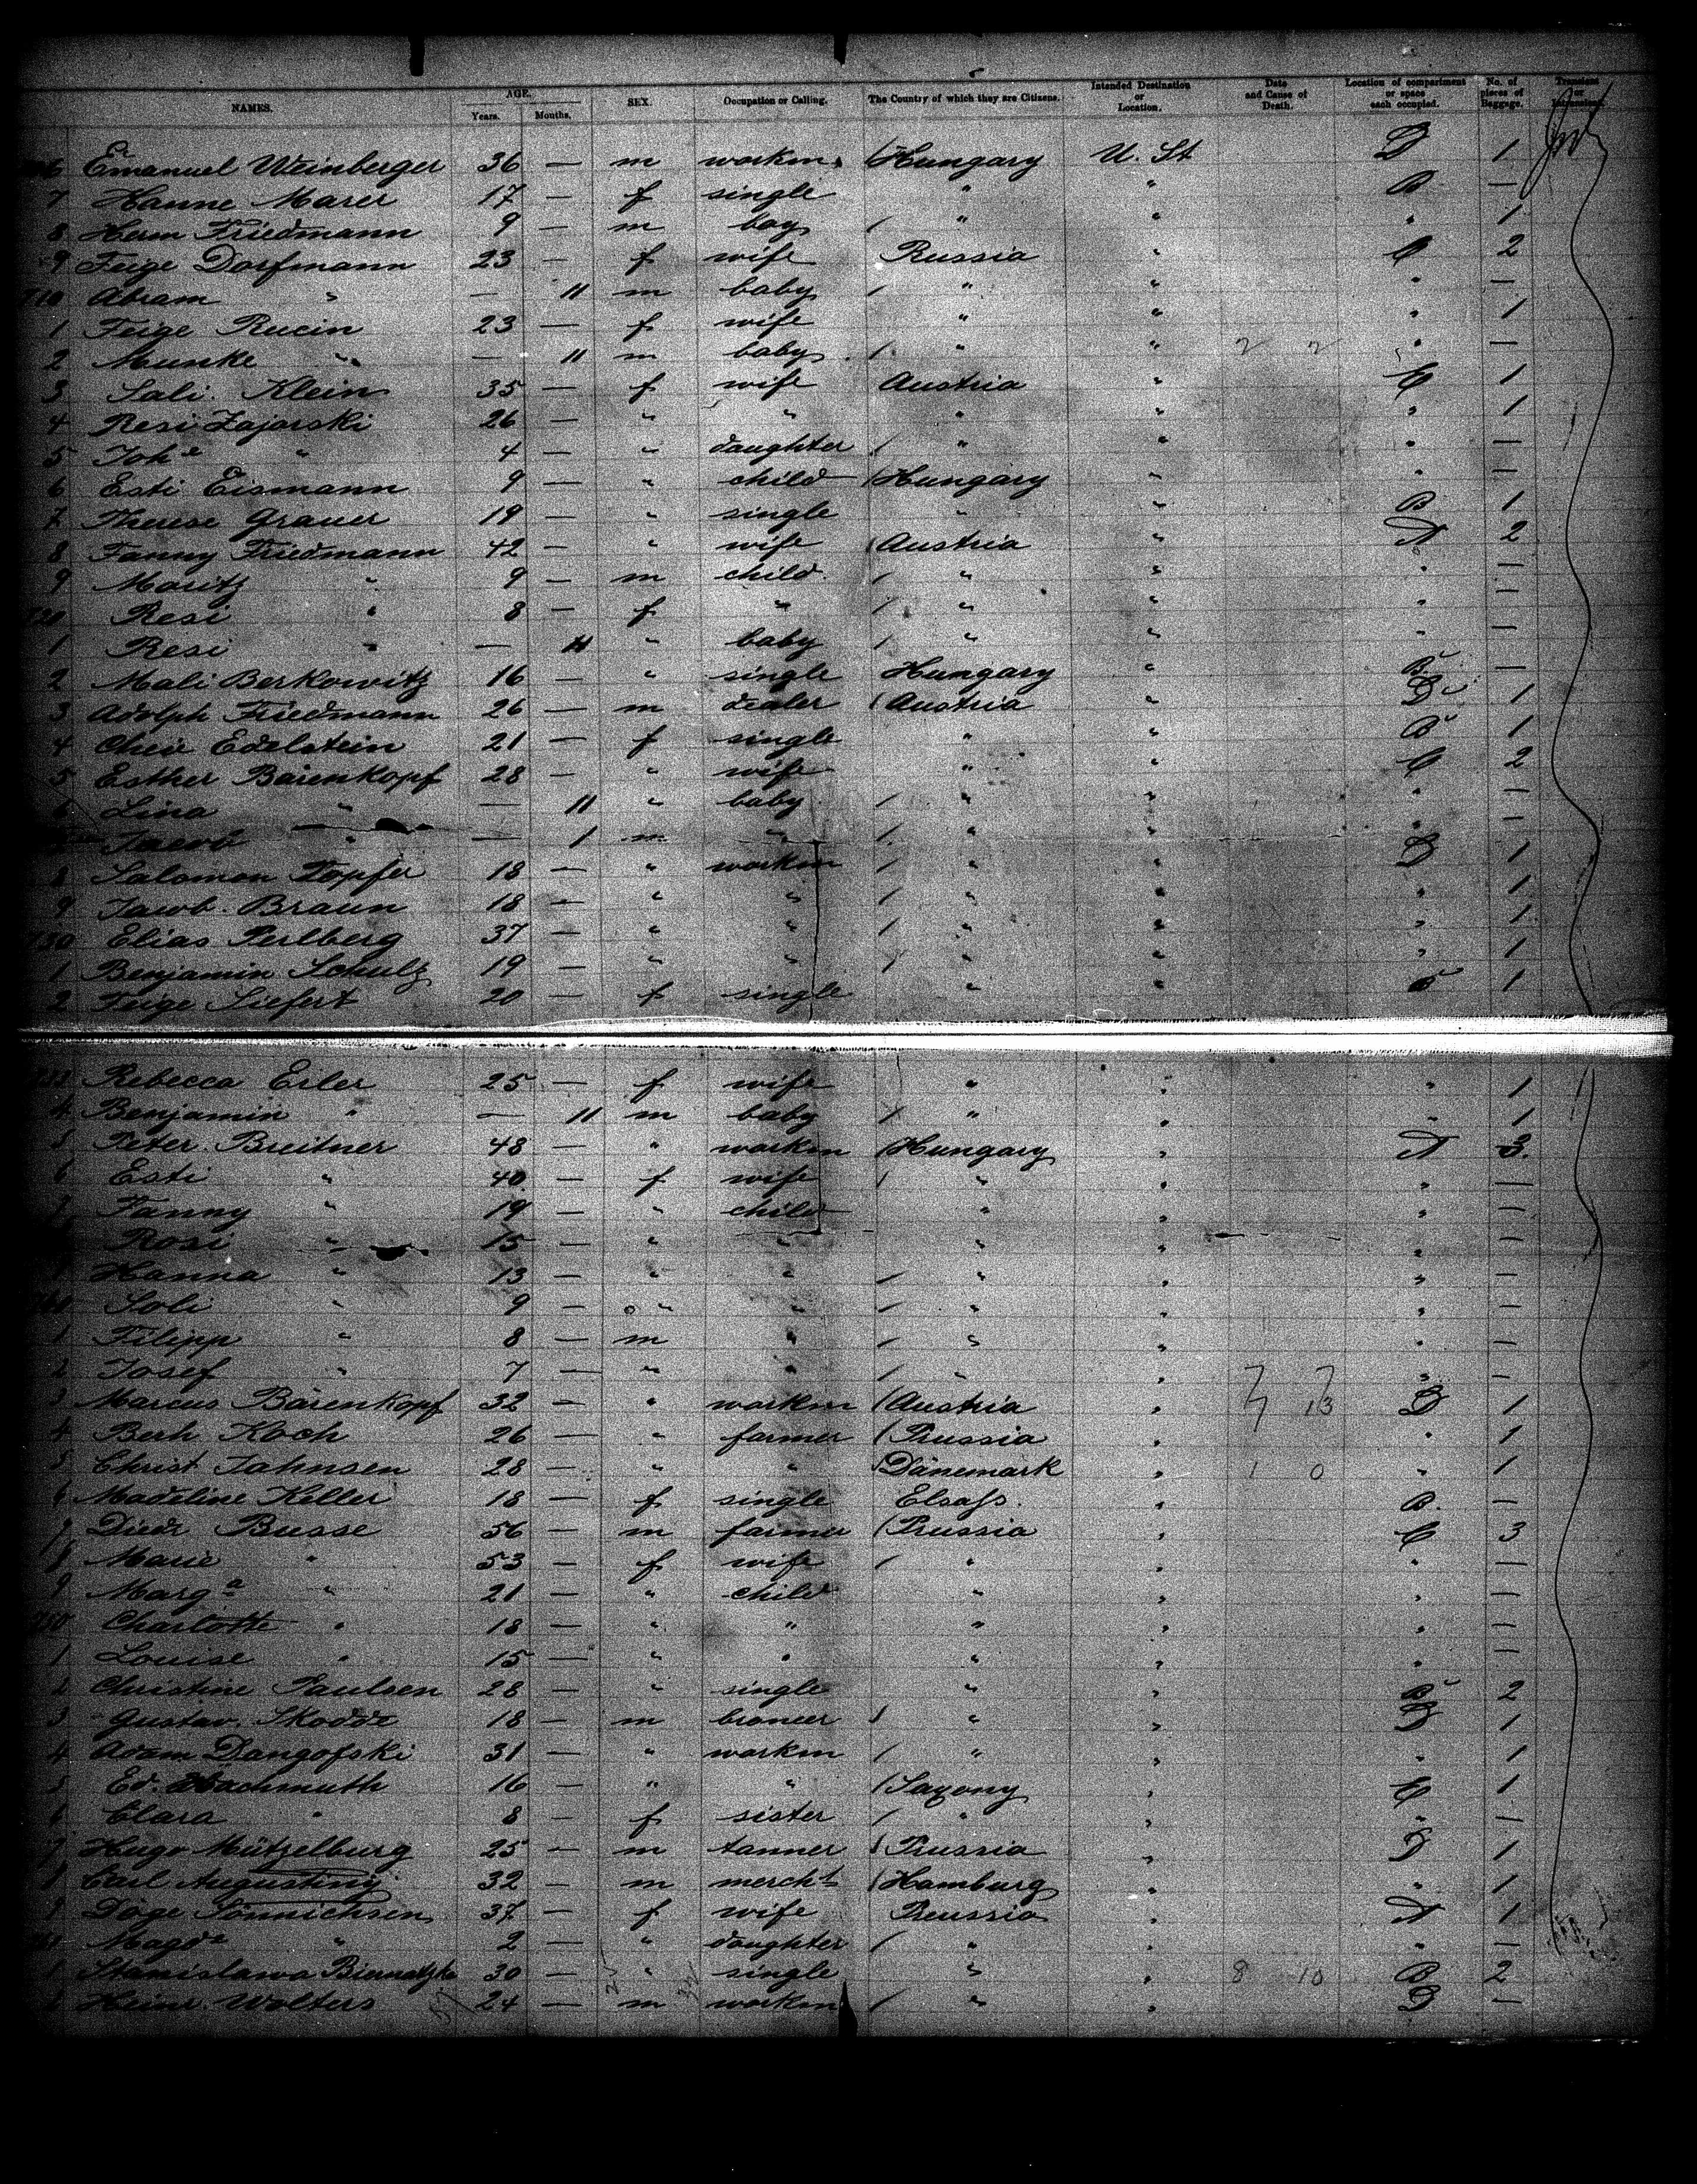 NAMES. AGE. Years. Months. SEX. Occupation or Calling. The Country of which they are Citizens. Intended Destination or Location. Date and Cause of Death. Location of compartment or space each occupied. No. of pieces of Baggage. Transient or
Emanuel Weinberger 36 — m workm. Hungary U. St D 1
7 Hanne Marer 17 — f single " " B —
8 Herm Friedmann 9 — m boy " " " 1
9 Feige Dorfmann 23 — f wife Russia " C 2
710 Abram " — 11 m baby " " " —
1 Feige Rucin 23 — f wife " " " 1
2 Munke " — 11 m baby " " 2 2 " —
3 Sali Klein 35 — f wife Austria " C 1
4 Resi Zajarski 26 — " " " " " 1
5 Joh^a " 4 — " daughter " " " —
6 Esti Eismann 9 — " child Hungary " " —
7 Therese Grauer 19 — " single " " B 1
8 Fanny Friedmann 42 — " wife Austria " A 2
9 Moritz " 9 — m child " " " —
720 Resi " 8 — f " " " " —
1 Resi " — 11 " baby " " " —
2 Mali Berkowitz 16 — " single Hungary " B —
3 Adolph Friedmann 26 — m dealer Austria " D 1
4 Edelstein 21 — f single " " B 1
5 Esther Bärenkopf 28 — " wife " " C 2
6 Lina " — 11 " baby " " " —
Jacob " — 1 m " " " " —
8 Salomon Töpfer 18 — " workm " " D 1
9 Jacob Braun 18 — " " " " " 1
730 Elias Perlberg 37 — " " " " " 1
1 Benjamin Schulz 19 — " " " " " 1
2 Feige Siefert 20 — f single " " B 1
733 Rebecca Erler 25 — f wife " " " 1
4 Benjamin " — 11 m baby " " " 1
5 Peter Breitner 48 — " workm Hungary " A 3.
6 Esti " 40 — f wife " " " —
Fanny " 19 — " child " " " —
Rosi " 15 — " " " " " —
9 Hanna " 13 — " " " " " —
740 Soli " 9 — " " " " " —
1 Filipp " 8 — m " " " " —
2 Josef " 7 — " " " " " —
3 Marcus Bärenkopf 32 — " workm Austria " 13 D 1
4 Berh Koch 26 — " farmer Prussia " " 1
5 Christ Jahnsen 28 — " " Dänemark " 1 0 " 1
6 Madeline Keller 18 — f single Elsass. " B. —
7 Diedr Busse 56 — m farmer Prussia " C 3
8 Marie " 53 — f wife " " " —
9 Marg^a " 21 — " child " " " —
750 Charlotte " 18 — " " " " " —
1 Louise " 15 — " " " " " —
2 Christine Paulsen 28 — " single " " B 2
3 Gustav Skodde 18 — m " " D 1
4 Adam Dangofski 31 — " workm " " " 1
5 Ed. Wachmuth 16 — " " Saxony " C 1
6 Clara " 8 — f sister " " " —
7 Hugo Mützelburg 25 — m tanner Prussia " D 1
8 Carl Augustiny 32 — m mercht Hamburg " " 1
9 Däge Sönnichsen 37 — f wife Preussia " A 1
Magd^a " 2 — " daughter " " " —
1 Stanislawa 30 — " single " " 8 10 B 2
2 Heinr. Wolters 24 — m workm " " D —